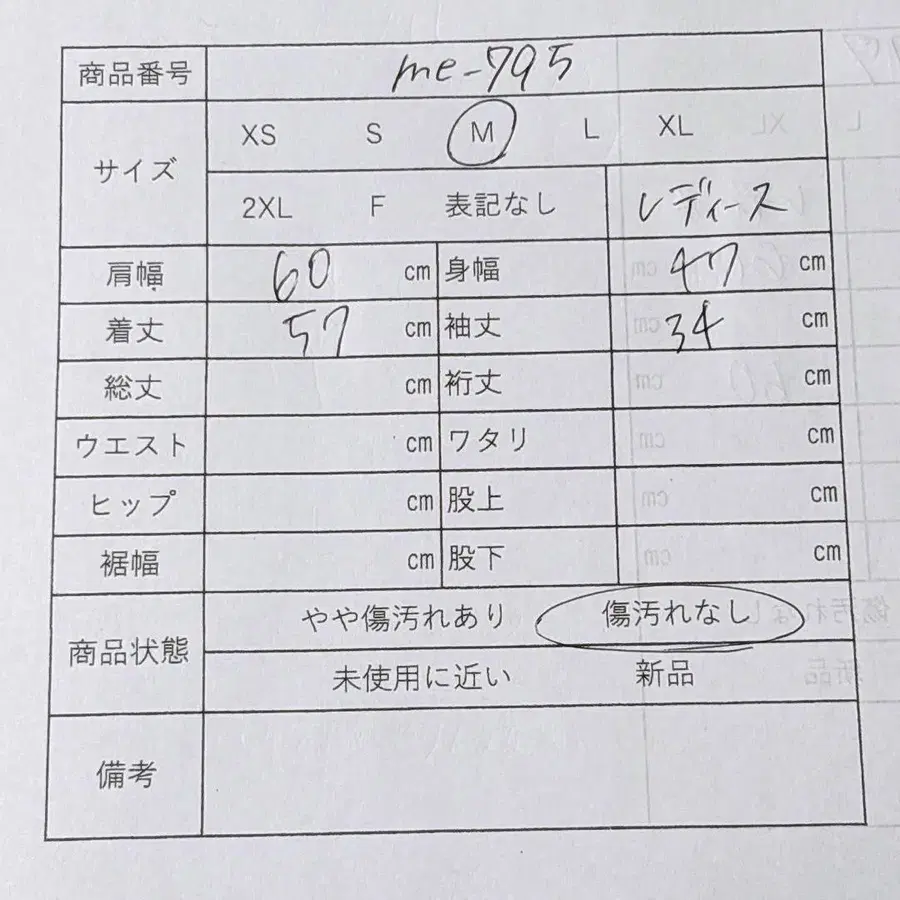 商品番号 me-795
サイズ XS S M L XL
2XL F 表記なし レディース
肩幅 60 cm 身幅 47 cm
着丈 57 cm 袖丈 34 cm
総丈 cm 裄丈 cm
ウエスト cm ワタリ cm
ヒップ cm 股上 cm
裾幅 cm 股下 cm
商品状態 やや傷汚れあり 傷汚れなし
未使用に近い 新品
備考